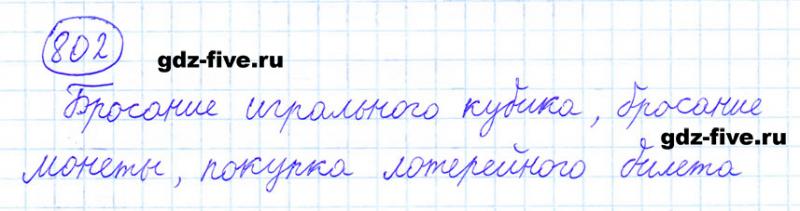 802
gdz-five.ru
Бросание игрального кубика, бросание
gdz-five.ru
монеты, покупка лотерейного билета